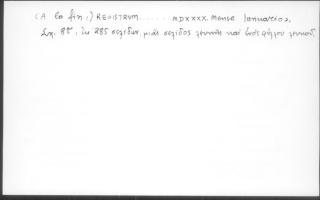 (A la fin:) REGISTRVM...... MDXXXX. Mense Ianuario,
Σχ. 8ον, ἐκ 285 σελίδων, μιᾶς σελίδος λευκῆς καὶ ἑνὸς φύλλου λευκοῦ.